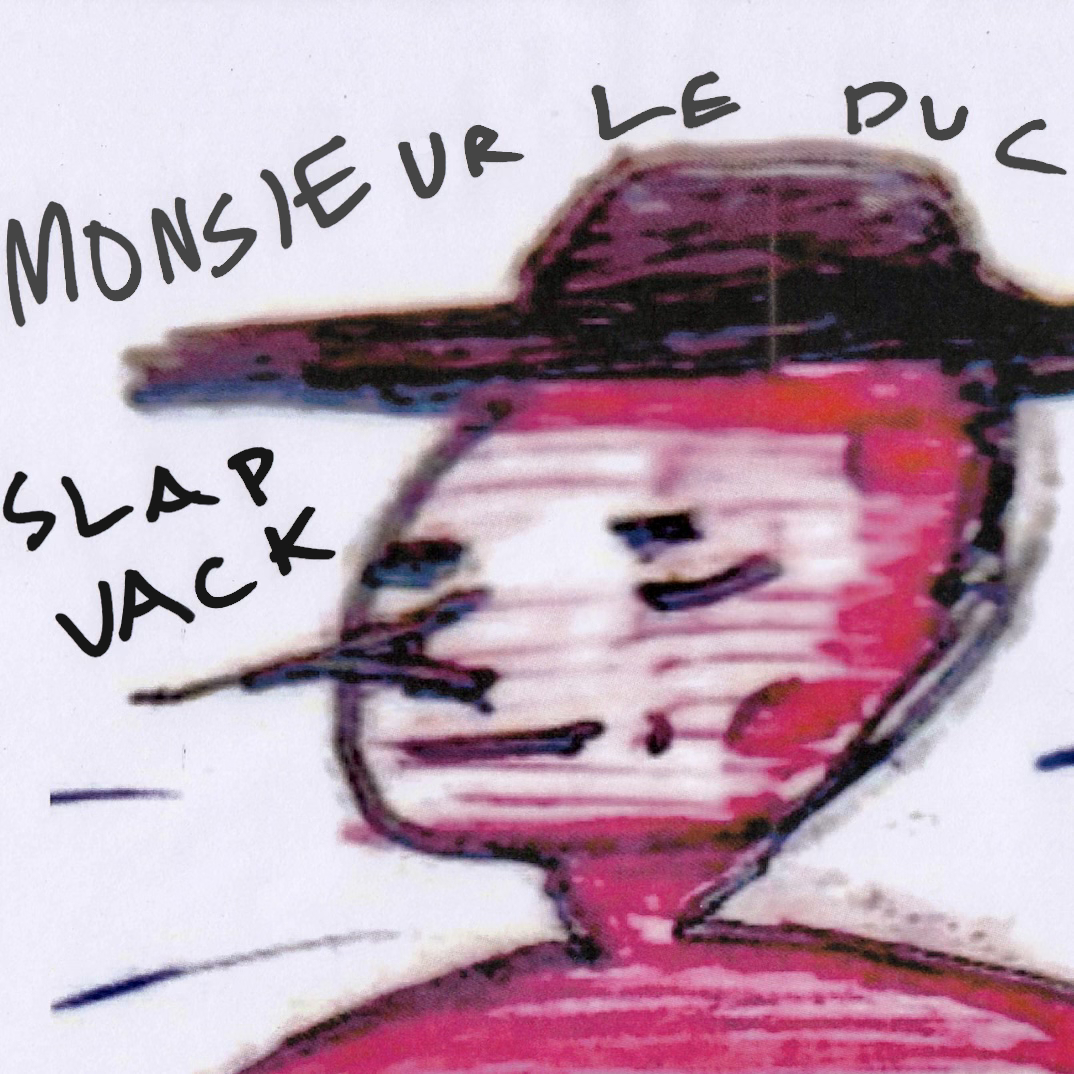 MONSIEUR LE DUC
SLAP
JACK